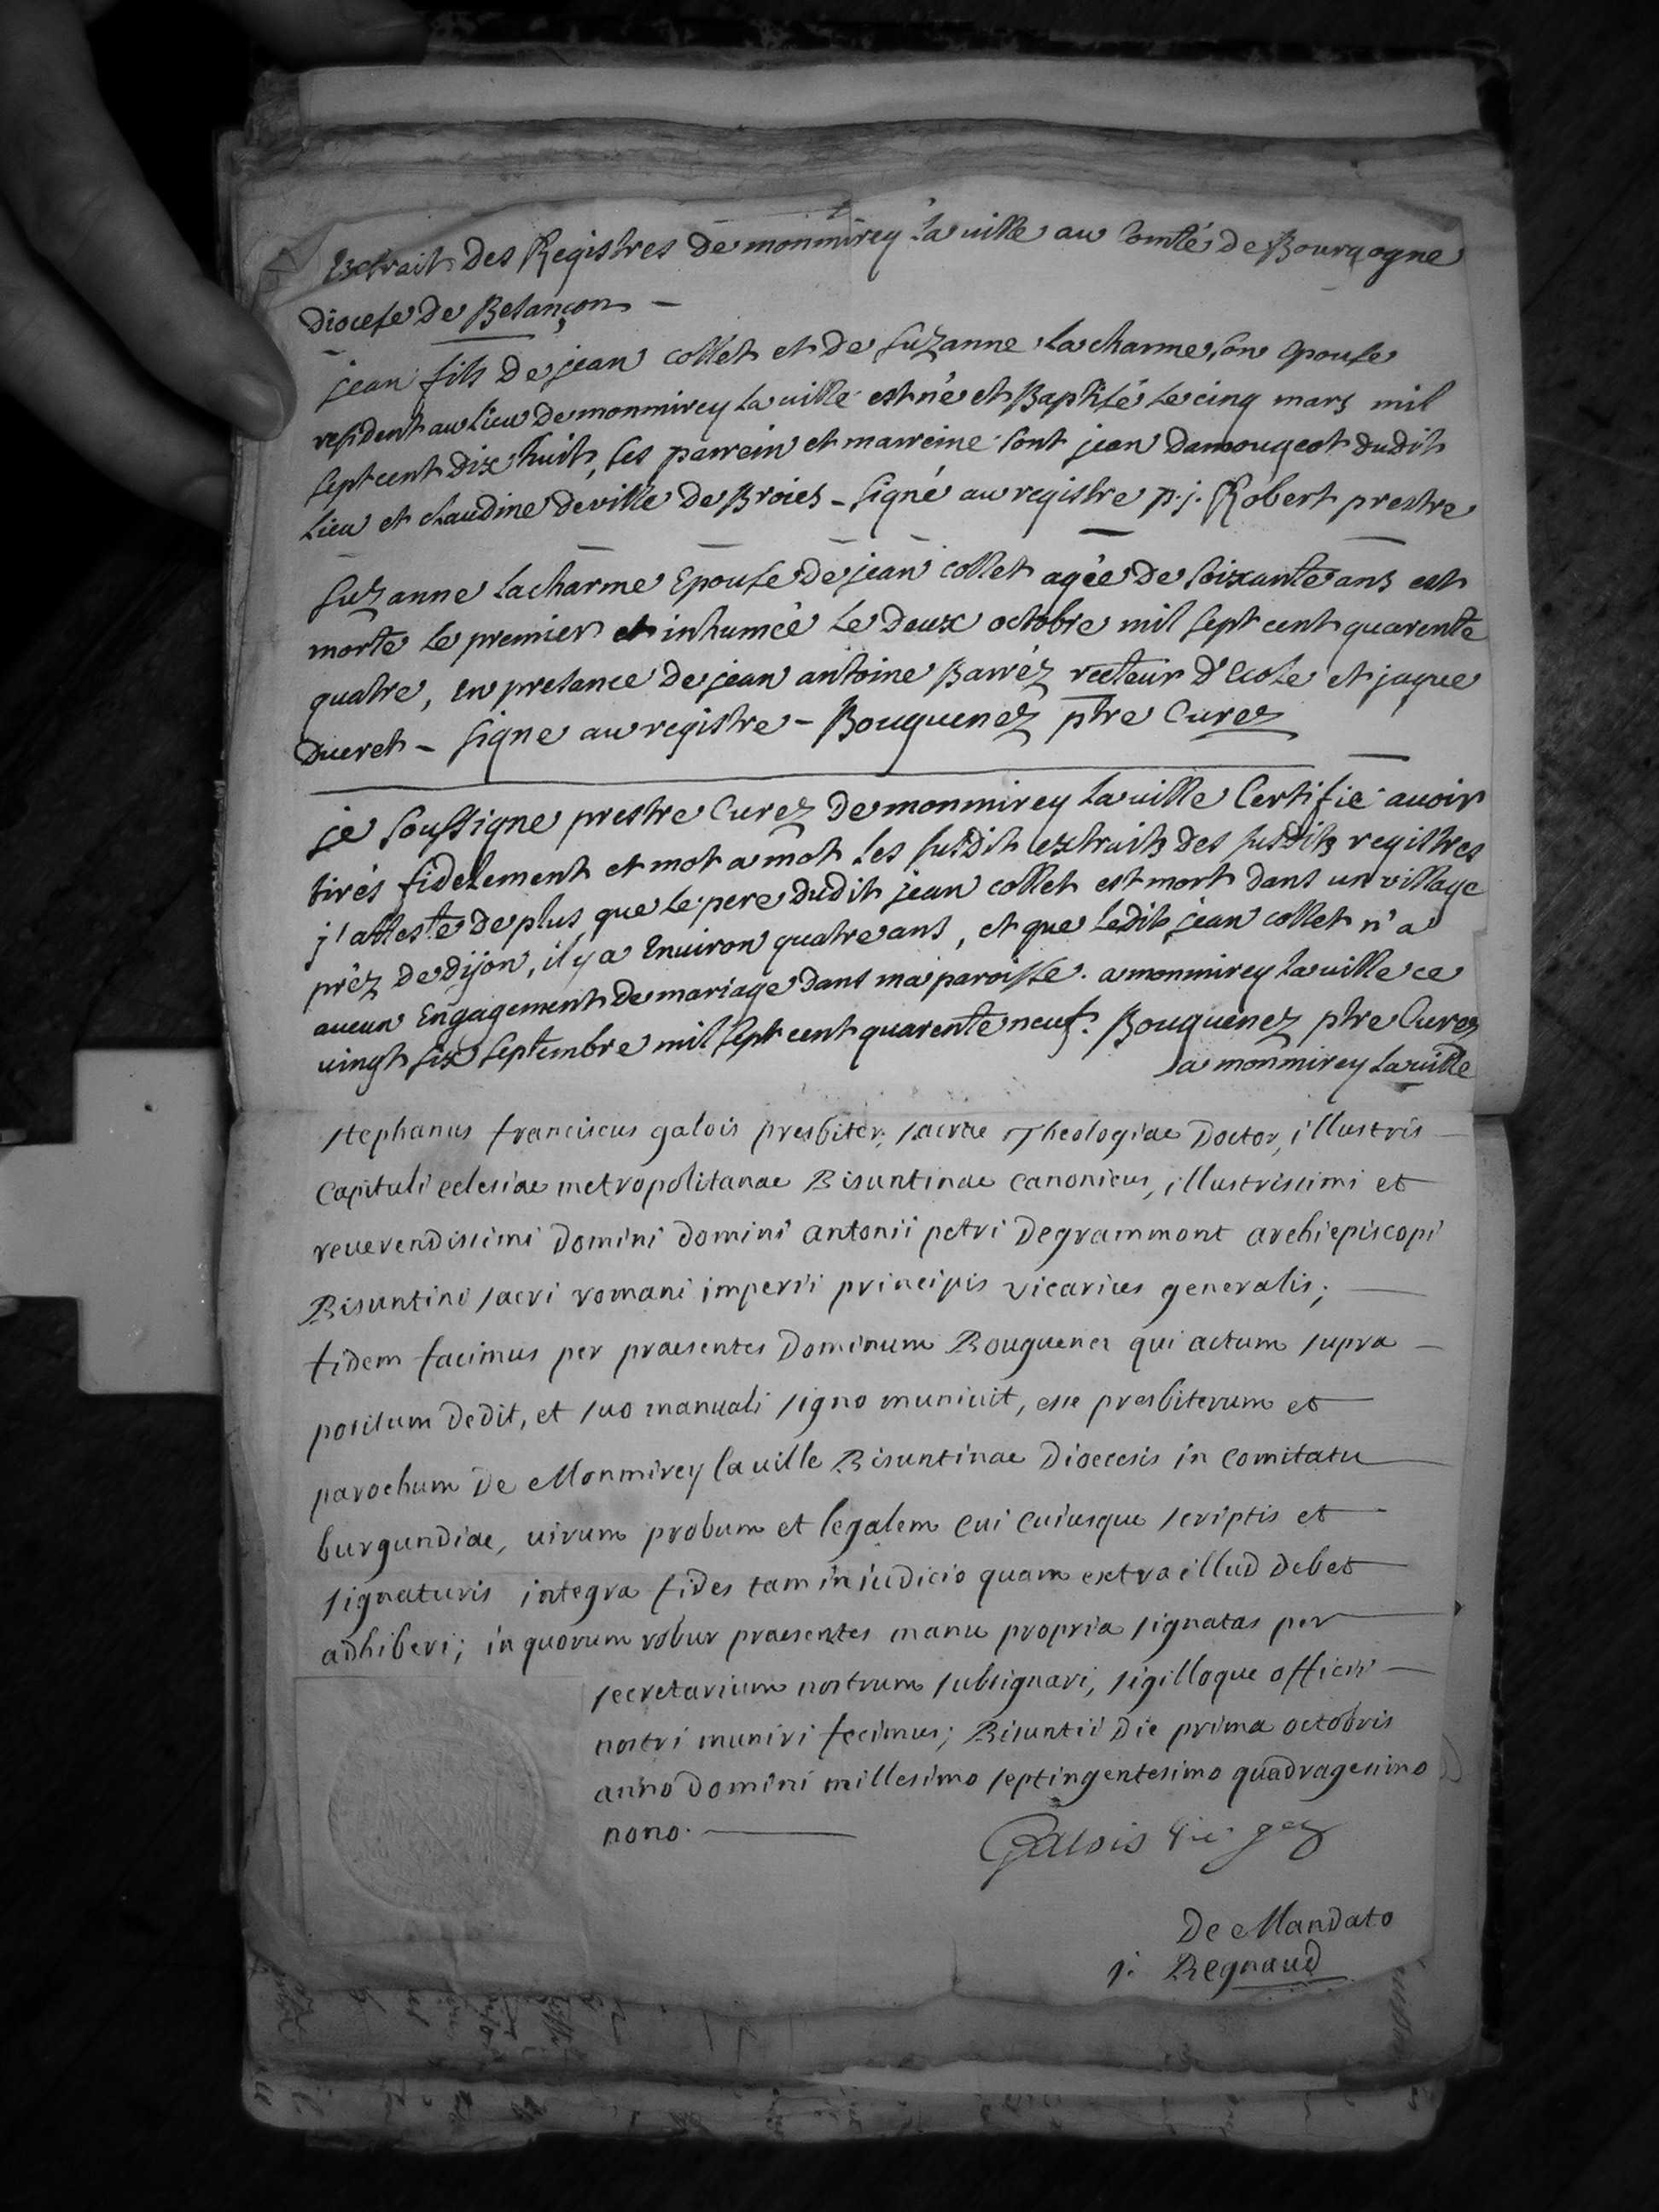 Extrait des Registres de monmirey la uille au Comté de Bourgogne
Diocese de Besançon
jean fils de jean collet et de suzanne lacharme son epouse
resident au lieu de monmirey la uille est né et Baptisé le cinq mars mil
sept cent dix huit, ses parrein et marreine sont jean damougeot dudit
lieu et claudine deville de Broies - signé au registre p. j. Robert prestre
suzanne lacharme Epouse de jean collet agée de soixante ans est
morte le premier et inhumée le deux octobre mil sept cent quarente
quatre, en presance de jean antoine Barréz recteur d'Ecole et jaque
Ducret - signe au registre - Bouguenez ptre Curez
je soussigne prestre Curez de monmirey la uille Certifie auoir
tirés fidelement et mot a mot les susdit extraits des susdits registres
j'atteste de plus que le pere dudit jean collet est mort dans un village
préz de dijon, il y a Enuiron quatre ans, et que ledit jean collet n'a
aucun Engagement de mariage dans ma paroisse. a monmirey la uille ce
uingt six septembre mil sept cent quarente neuf. Bouguenez ptre Curez
a monmirey la uille
stephanus franciscus galois presbiter, sacrae Theologiae Doctor, illustris
capituli eclesiae metropolitanae Bisuntinae canonicus, illustrissimi et
reuerendissimi Domini Domini antonii petri Degrammont archiepiscopi
Bisuntini sacri romani imperii principis vicarius generalis;
fidem facimus per praesentes Dominum Bouguenez qui actum supra
positum Dedit, et suo manuali signo muniuit, esse presbiterum et
parochum De Monmirey la uille Bisuntinae Dioecesis in comitatu
burgundiae, uirum probum et legalem cui cuiusque scriptis et
signaturis integra fides tam in iudicio quam extra illud Debet
adhiberi; in quorum robur praesentes manu propria signatas per
secretarium nostrum subsignari, sigilloque officii
nostri muniri fecimus; Bisuntii Die prima octobris
anno Domini millesimo septingentesimo quadragesimo
nono.
Galois vic. gen
De Mandato
j. Regnaud